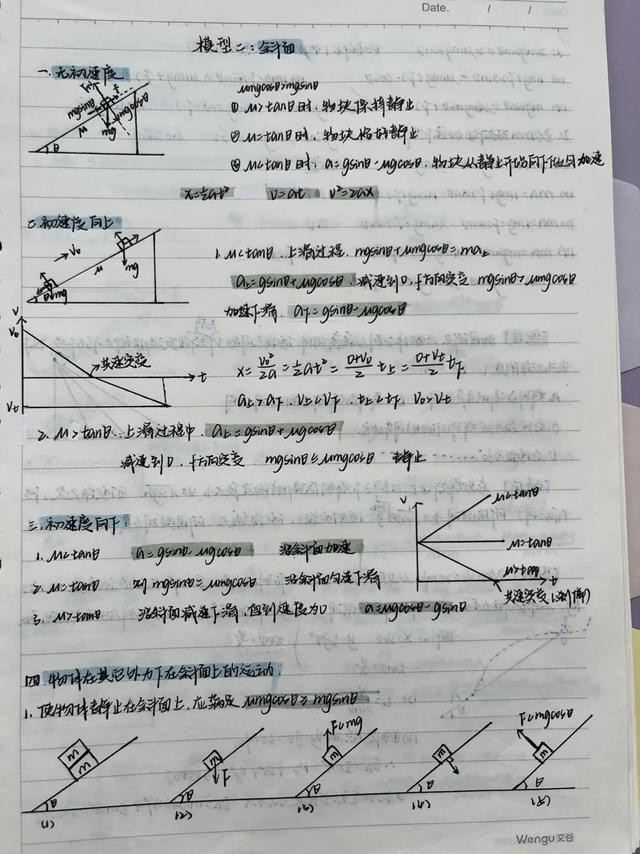 Date. / /
模型二:斜面
一.无初速度
μmgcosθ>mgsinθ
① μ>tanθ时,物块保持静止
② μ=tanθ时,物块恰好静止
③ μ<tanθ时,a=gsinθ-μgcosθ,物块从静止开始向下做匀加速
x=½at² v=at v²=2ax
mgsinθ
f
μ
mg
θ
二.初速度向上
1. μ<tanθ.上滑过程,mgsinθ+μmgcosθ=ma上
a上=gsinθ+μgcosθ.减速到0,f方向突变 mgsinθ>μmgcosθ
加速下滑,a下=gsinθ-μgcosθ
→V₀
μ
mg
θ
mg
V
V₀
共速突变
t
Vt
x=V₀²/2a=½at²=(0+V₀)/2 t上=(0+Vt)/2 t下
a上>a下.V上<V下.t上<t下.V₀>Vt
2. μ>tanθ.上滑过程中,a上=gsinθ+μgcosθ
减速到0,f方向突变 mgsinθ≤μmgcosθ 静止
三.初速度向下
1. μ<tanθ a=gsinθ-μgcosθ 沿斜面加速
2. μ=tanθ 则mgsinθ=μmgcosθ 沿斜面匀速下滑
3. μ>tanθ 沿斜面减速下滑,直到速度为0 a=μgcosθ-gsinθ
V
μ<tanθ
μ=tanθ
μ>tanθ
t
共速突变
四.物体在其它外力下在斜面上的运动.
1. 使物体静止在斜面上,应满足μmgcosθ≥mgsinθ
m
m
θ
(1)
m
F
θ
(2)
F<mg
m
θ
(3)
m
θ
(4)
F<mgcosθ
m
θ
(5)
Wengu 文谷